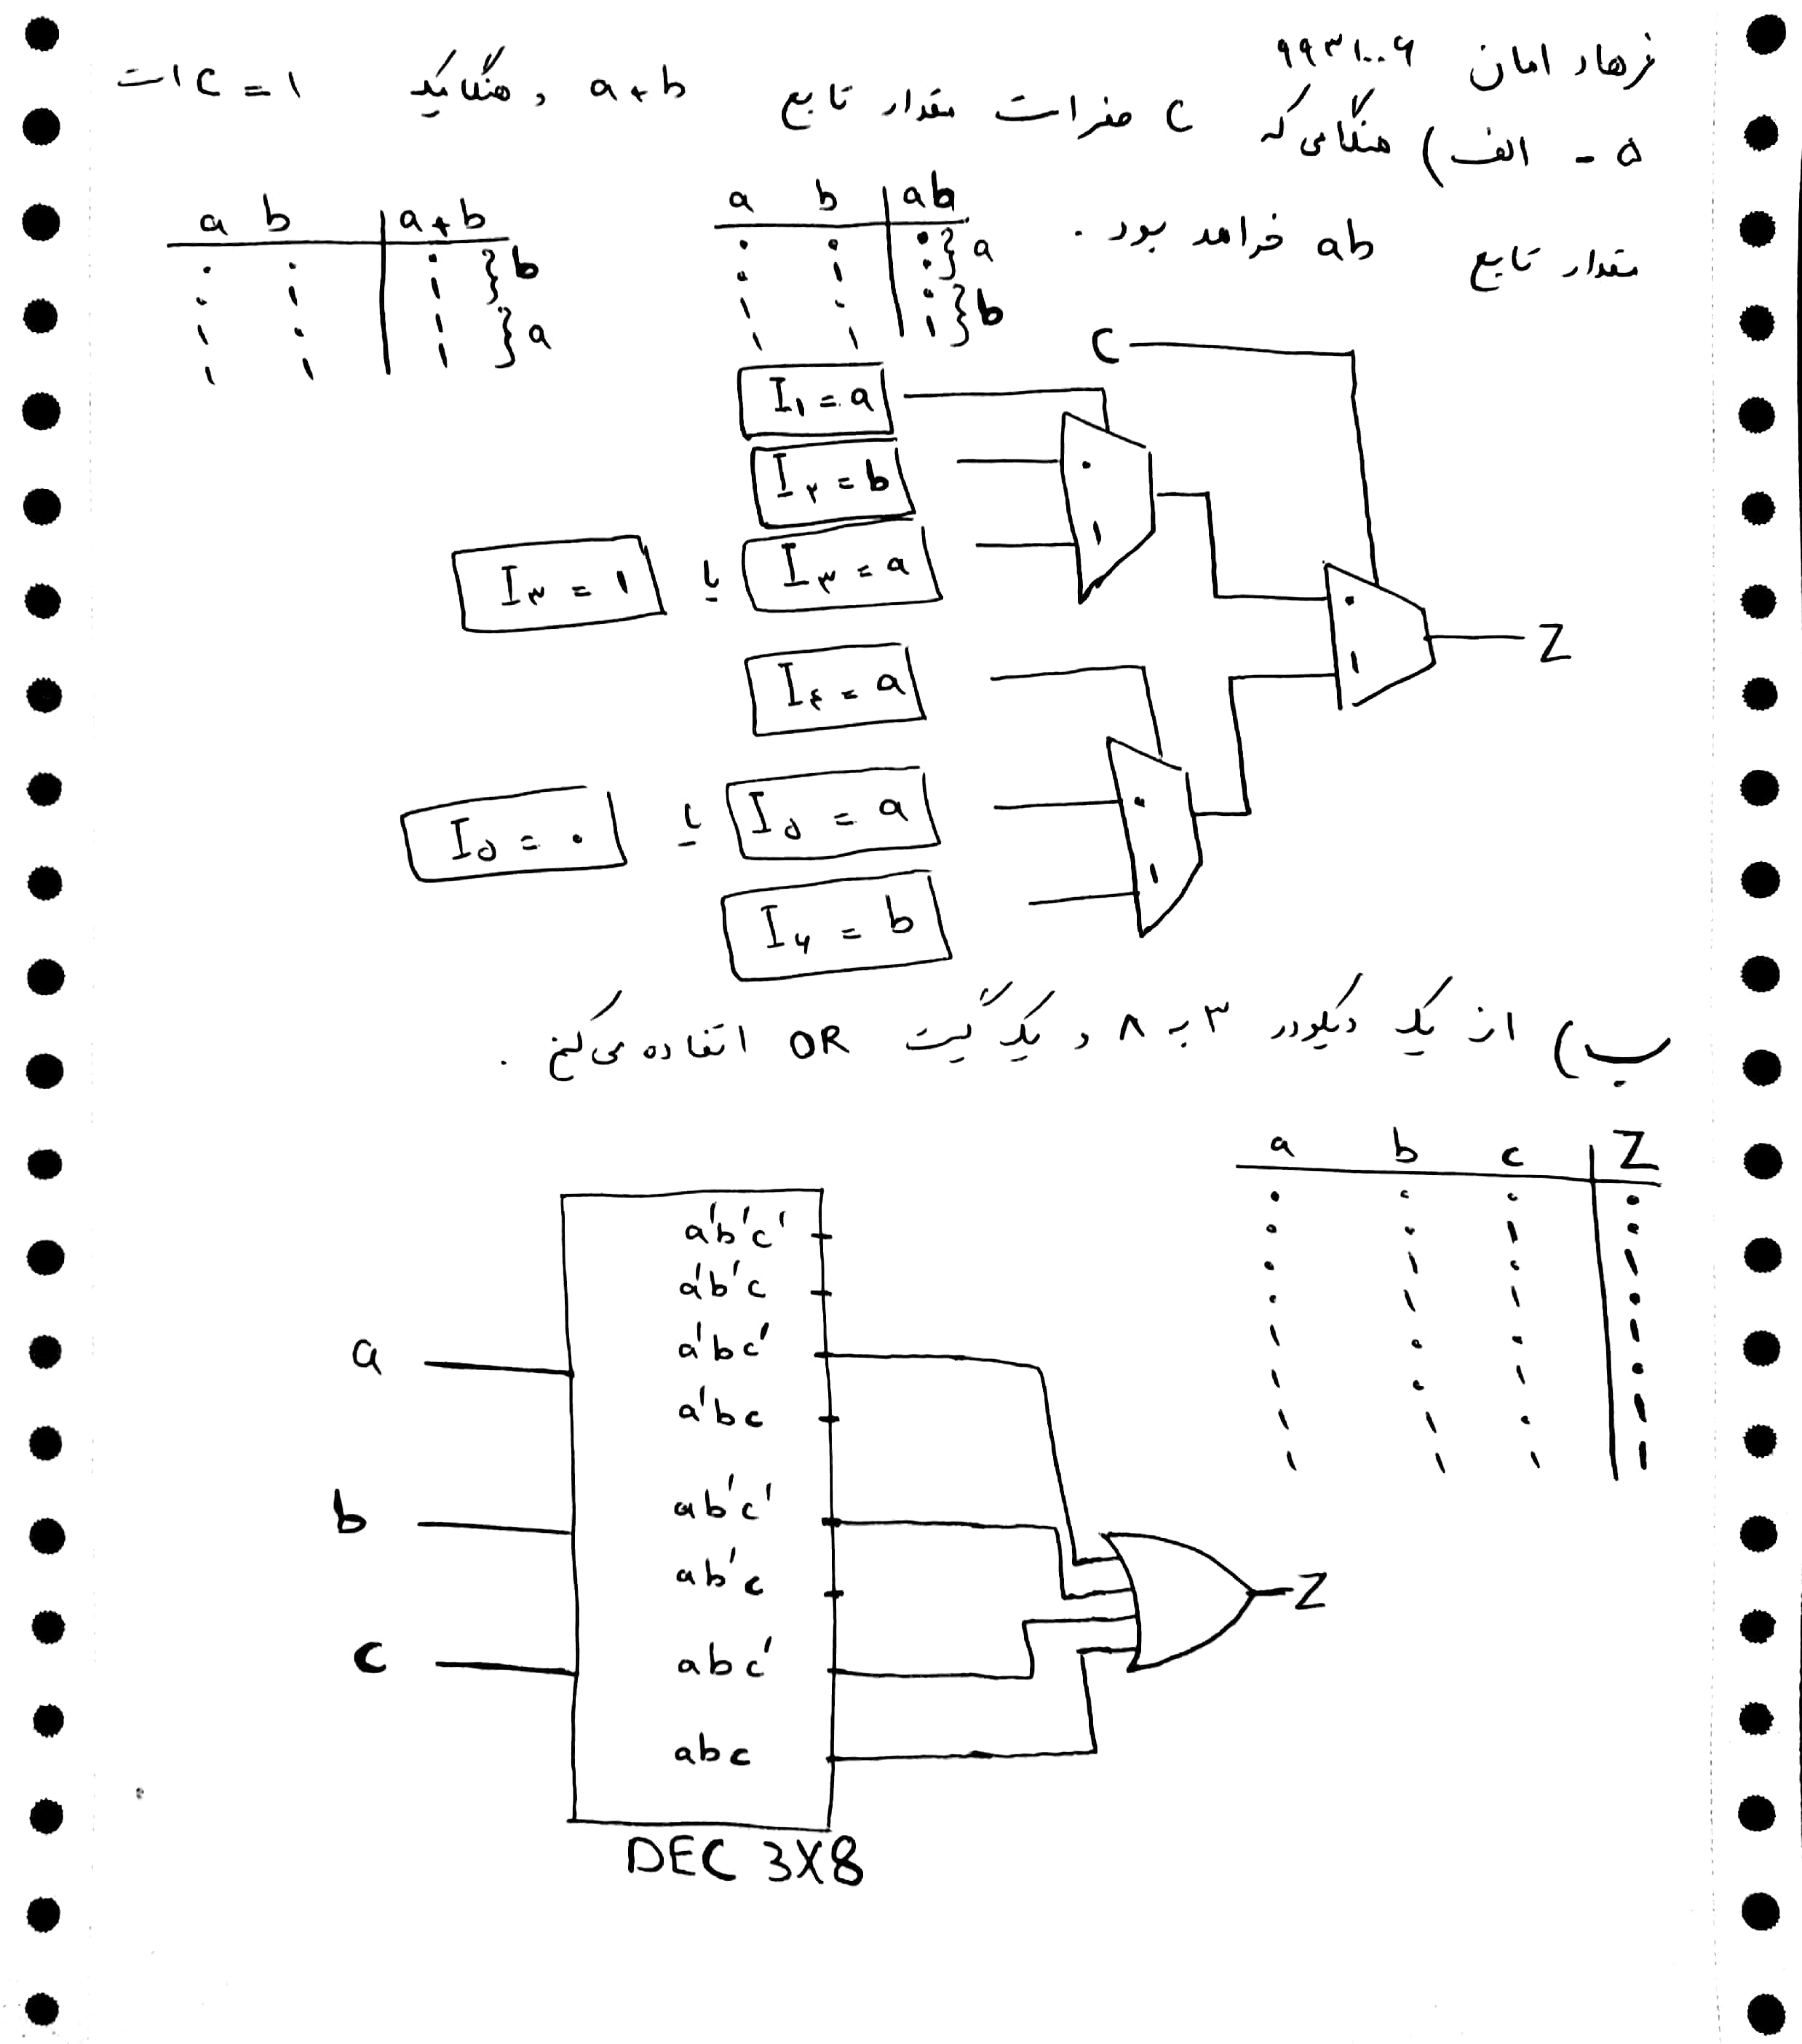 فرهاد امان ۹۹۳۱۰۰۶
۵ - الف) هنگامی که C صفر است مقدار تابع a+b و هنگامیکه C = ۱ است
مقدار تابع ab خواهد بود .
a b a+b
۰ ۰ ۰
۰ ۱ ۱ } b
۱ ۰ ۱
۱ ۱ ۱ } a
a b ab
۰ ۰ ۰
۰ ۱ ۰ } a
۱ ۰ ۰
۱ ۱ ۱ } b
C
I₁ = a
I۲ = b
۰
۱
I۳ = a یا I۳ = ۱
۰
۱
Z
I۴ = a
I۵ = a یا I۵ = ۰
۰
۱
I۶ = b
ب) از یک دیکودر ۳ به ۸ و یک گیت OR استفاده می کنیم .
a b c Z
۰ ۰ ۰ ۰
۰ ۰ ۱ ۰
۰ ۱ ۰ ۱
۰ ۱ ۱ ۰
۱ ۰ ۰ ۱
۱ ۰ ۱ ۰
۱ ۱ ۰ ۱
۱ ۱ ۱ ۱
a'b'c'
a'b'c
a'bc'
a
a'bc
ab'c'
b
ab'c
Z
abc'
c
abc
DEC 3X8